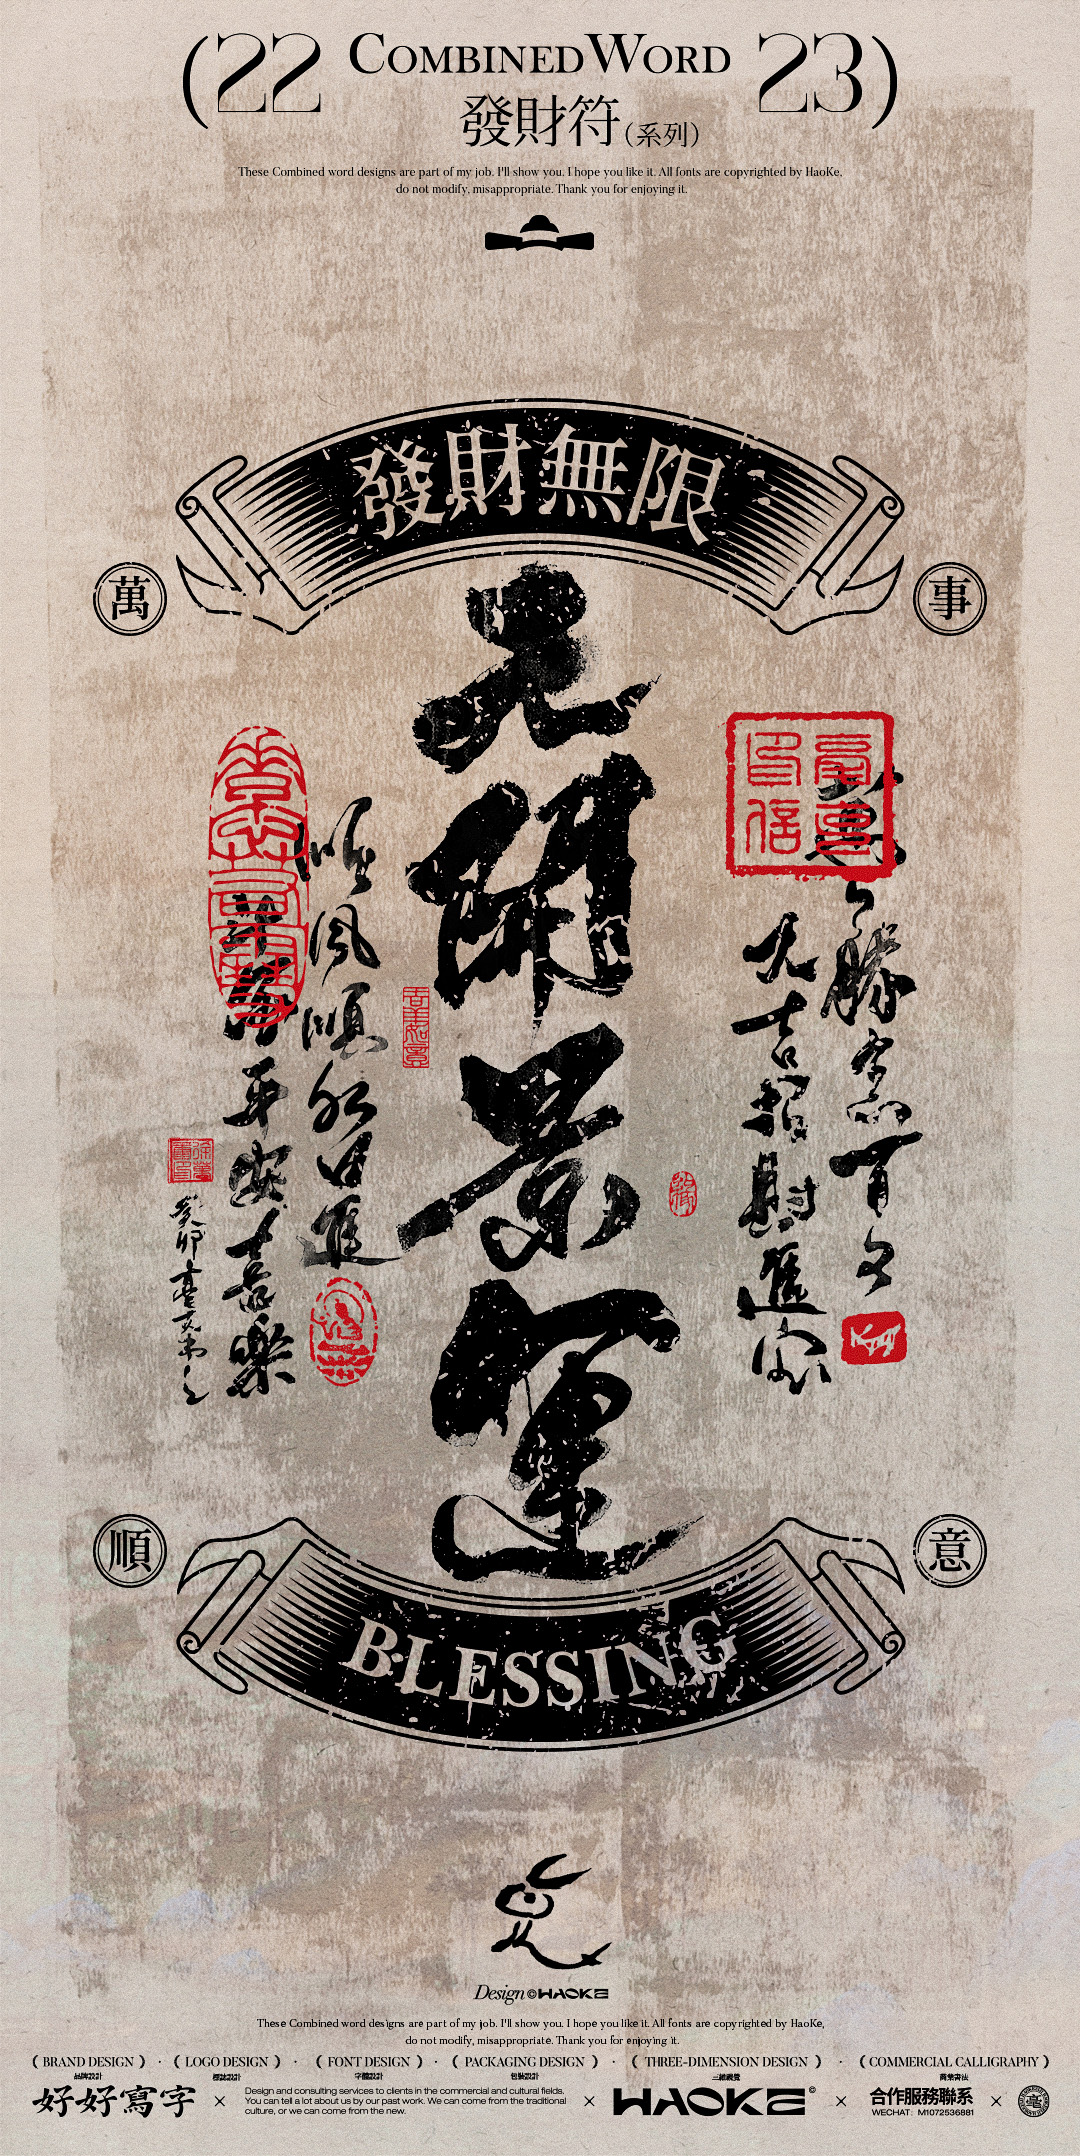 (22 COMBINED WORD 23)
發財符(系列)
These Combined word designs are part of my job. I'll show you. I hope you like it. All fonts are copyrighted by HaoKe,
do not modify, misappropriate. Thank you for enjoying it.
發財無限
萬
事
元開景運
大吉招財進寶
順風順水日進
平安喜樂
癸卯
順
意
BLESSING
Design © HAOKE
These Combined word designs are part of my job. I'll show you. I hope you like it. All fonts are copyrighted by HaoKe,
do not modify, misappropriate. Thank you for enjoying it.
( BRAND DESIGN ) · ( LOGO DESIGN ) · ( FONT DESIGN ) · ( PACKAGING DESIGN ) · ( THREE-DIMENSION DESIGN ) · ( COMMERCIAL CALLIGRAPHY )
品牌設計 標誌設計 字體設計 包裝設計 三維視覺 商業書法
好好寫字
Design and consulting services to clients in the commercial and cultural fields.
You can tell a lot about us by our past work. We can come from the traditional
culture, or we can come from the new.
HAOKE©
合作服務聯系
WECHAT: M1072536881